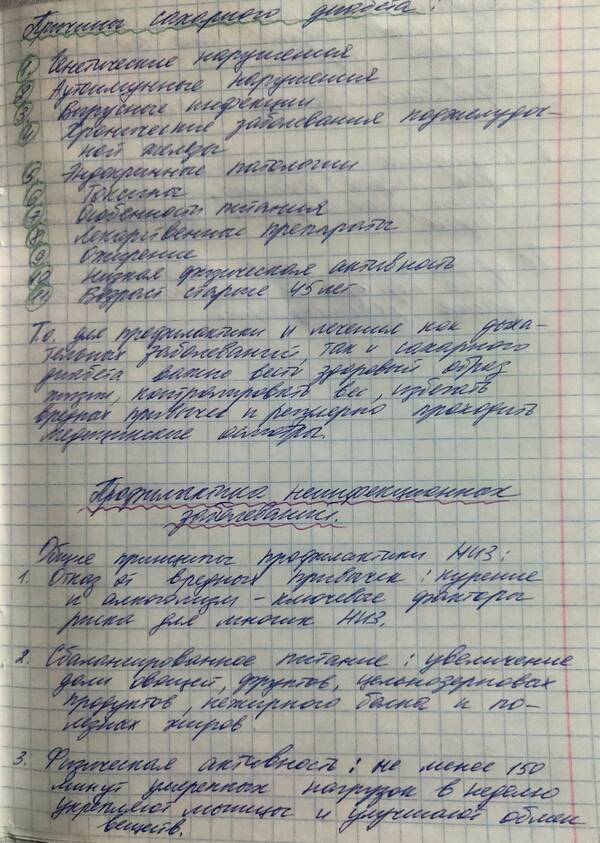 Причины сахарного диабета:
1. Генетические нарушения
2. Аутоимунные нарушения
3. Вирусные инфекции
4. Хронические заболевания поджелудоч-
ной железы
5. Эндокринные патологии
6. Токсины
7. Особенности питания
8. Лекарственные препараты
9. Ожирение
10. Низкая физическая активность
11. Возраст старше 45 лет
Т.о. для профилактики и лечения как дыха-
тельных заболеваний, так и сахарного
диабета важно вести здоровый образ
жизни, контролировать вес, избегать
вредных привычек и регулярно проходить
медицинские осмотры.
Профилактика неинфекционных
заболеваний.
Общие принципы профилактики НИЗ:
1. Отказ от вредных привычек: курение
и алкоголизм - ключевые факторы
риска для многих НИЗ.
2. Сбалансированное питание: увеличение
доли овощей, фруктов, цельнозерновых
продуктов, нежирного белка и по-
лезных жиров
3. Физическая активность: не менее 150
минут умеренных нагрузок в неделю
укрепляют мышцы и улучшают обмен
веществ.